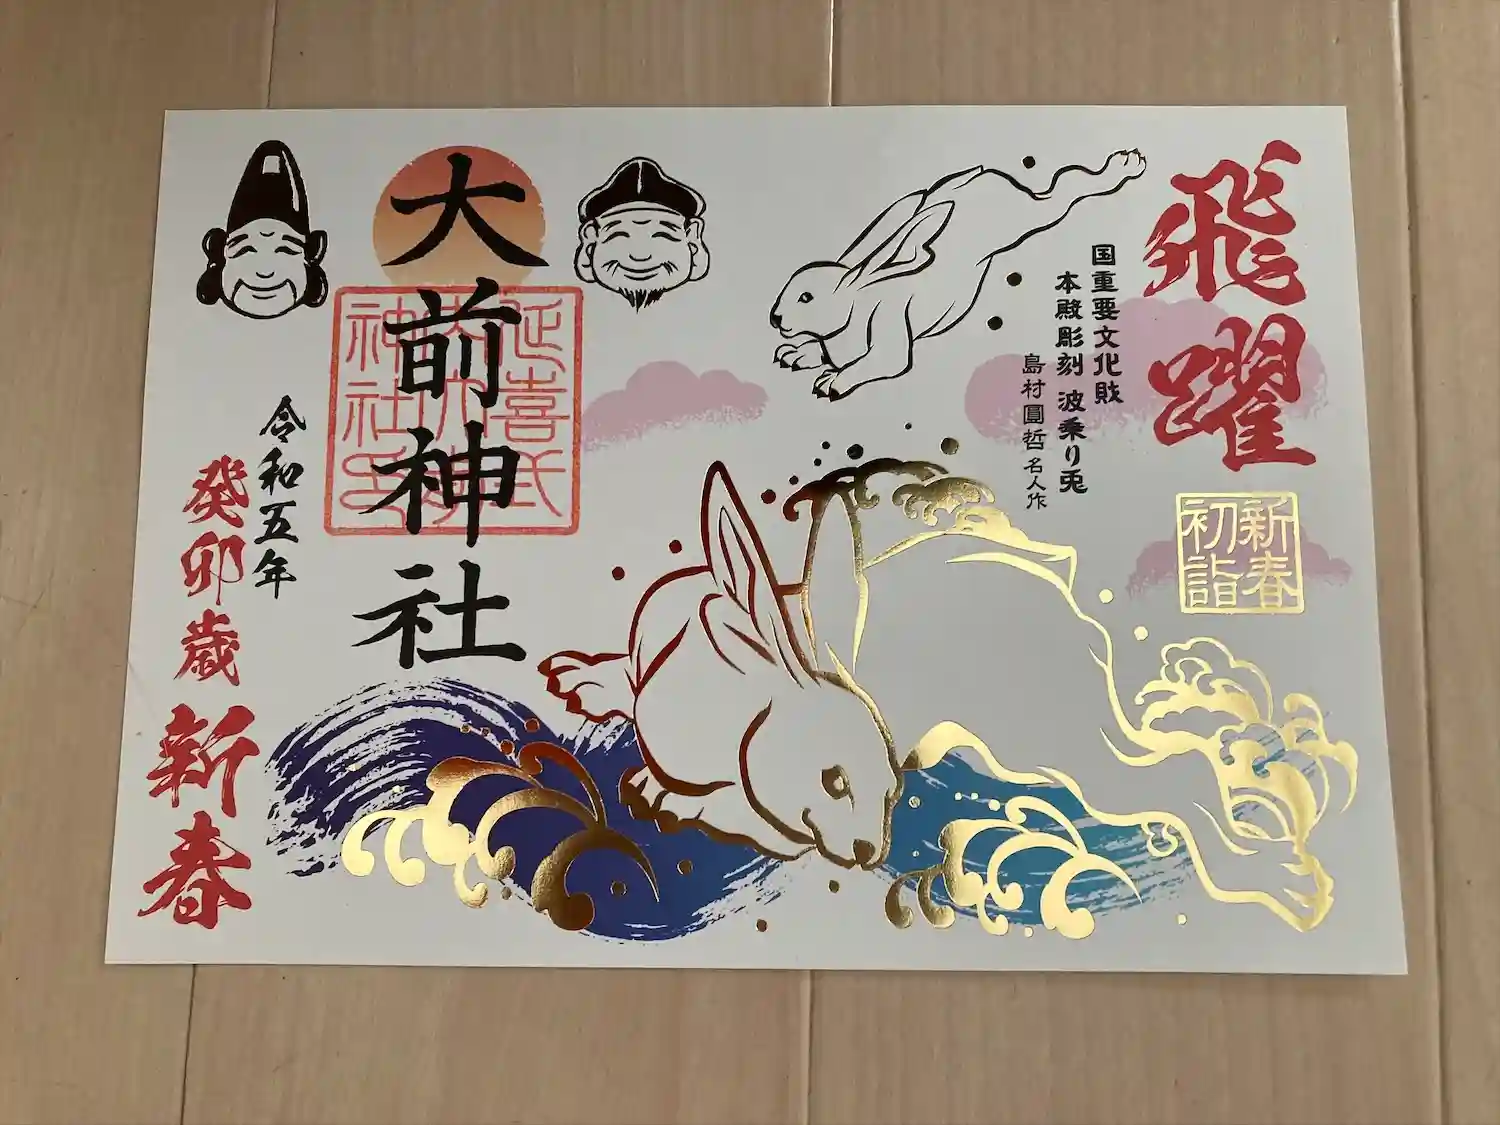 飛躍
国重要文化財
本殿彫刻 波乗り兎
島村圓哲名人作
新春
初詣
大前神社
延喜式
神社
令和五年
癸卯歳
新春